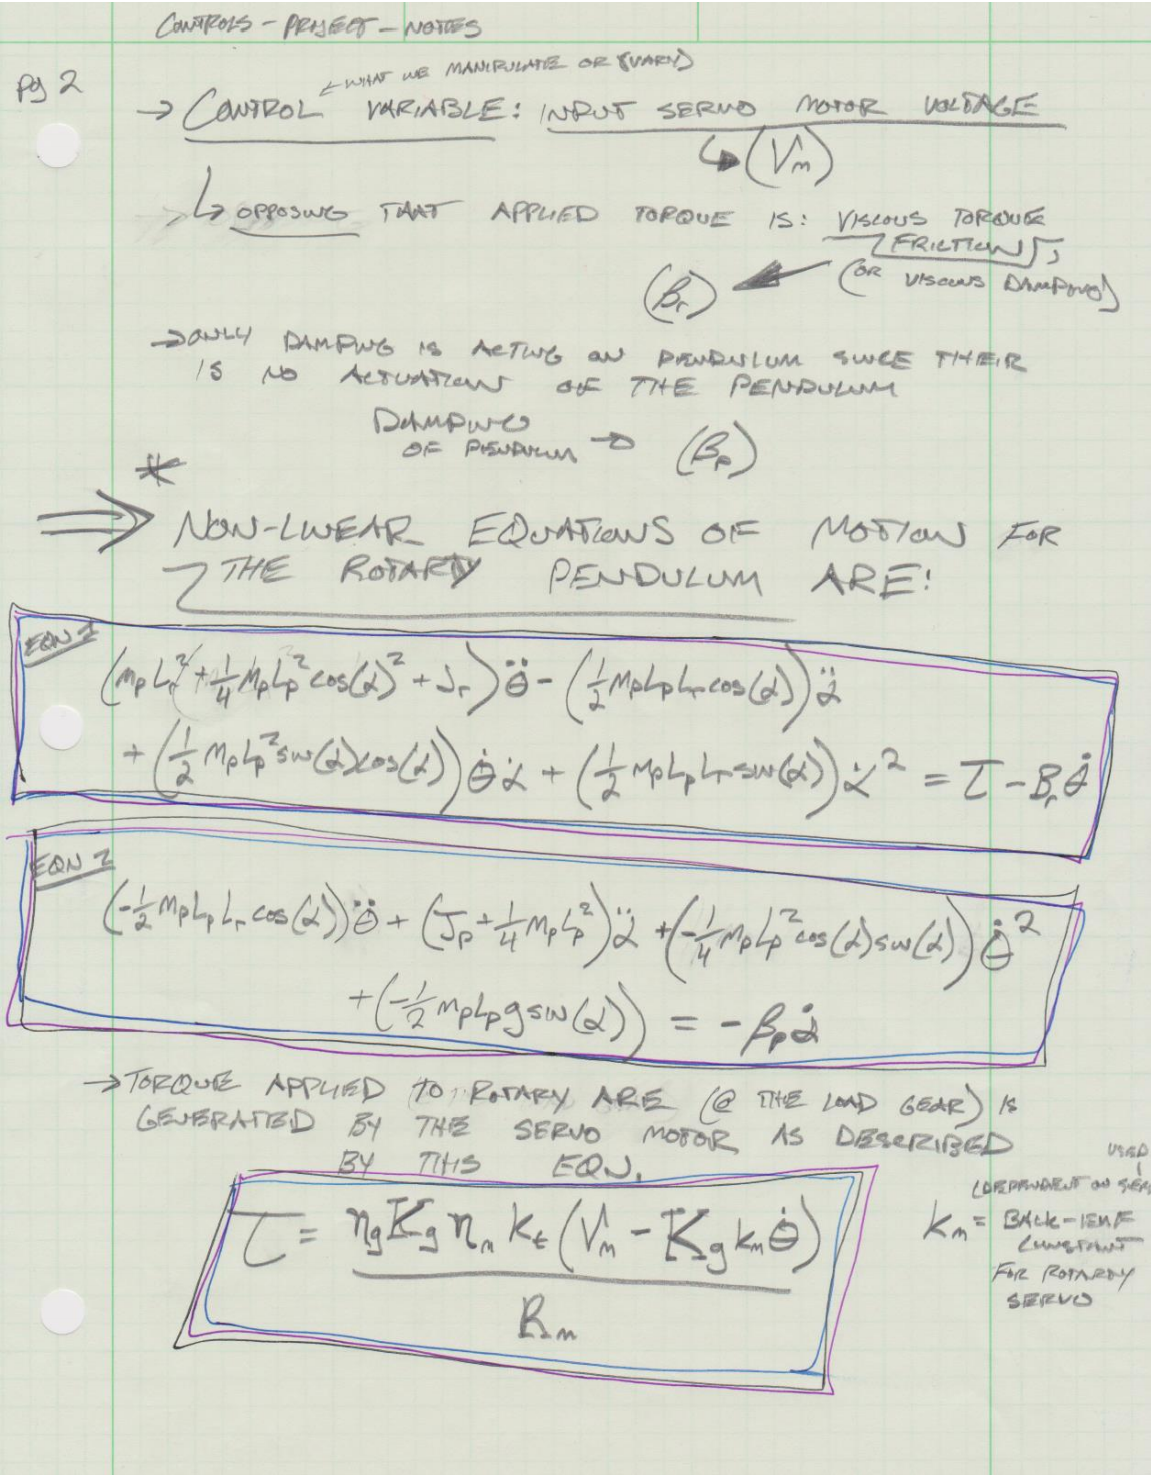 CONTROLS - PROJECT - NOTES
pg 2
← WHAT WE MANIPULATE OR (VARY)
→ CONTROL VARIABLE: INPUT SERVO MOTOR VOLTAGE
↳ (Vm)
↳ OPPOSING THAT APPLIED TORQUE IS: VISCOUS TORQUE
FRICTION,
(OR VISCOUS DAMPING)
(βr)
→ ONLY DAMPING IS ACTING ON PENDULUM SINCE THEIR
IS NO ACTUATION OF THE PENDULUM
DAMPING
OF PENDULUM → (βp)
*
⇒ NON-LINEAR EQUATIONS OF MOTION FOR
THE ROTARY PENDULUM ARE:
EQN 1
(mp Lr² + 1/4 mp Lp² cos(α)² + Jr) θ̈ - (1/2 mp Lp Lr cos(α)) α̈
+ (1/2 mp Lp² sin(α) cos(α)) θ̇ α̇ + (1/2 mp Lp Lr sin(α)) α̇² = τ - Br θ̇
EQN 2
(-1/2 mp Lp Lr cos(α)) θ̈ + (Jp + 1/4 mp Lp²) α̈ + (-1/4 mp Lp² cos(α) sin(α)) θ̇²
+ (-1/2 mp Lp g sin(α)) = -βp α̇
→ TORQUE APPLIED TO ROTARY ARE (@ THE LOAD GEAR) IS
GENERATED BY THE SERVO MOTOR AS DESCRIBED
BY THIS EQN.
τ = ηg Kg ηm kt (Vm - Kg km θ̇)
Rm
USED
(DEPENDENT ON
km = BACK-EMF
CONSTANT
FOR ROTARY
SERVO